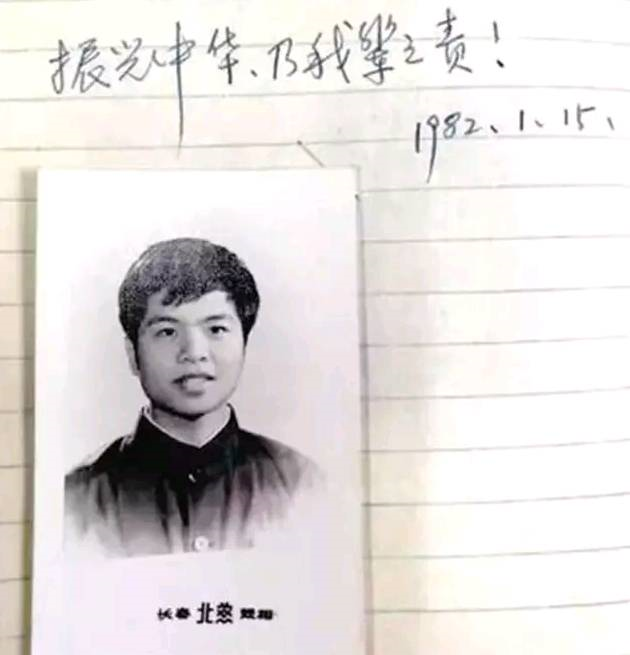 振兴中华、乃我辈之责！
1982、1、15、
长春 北 照相